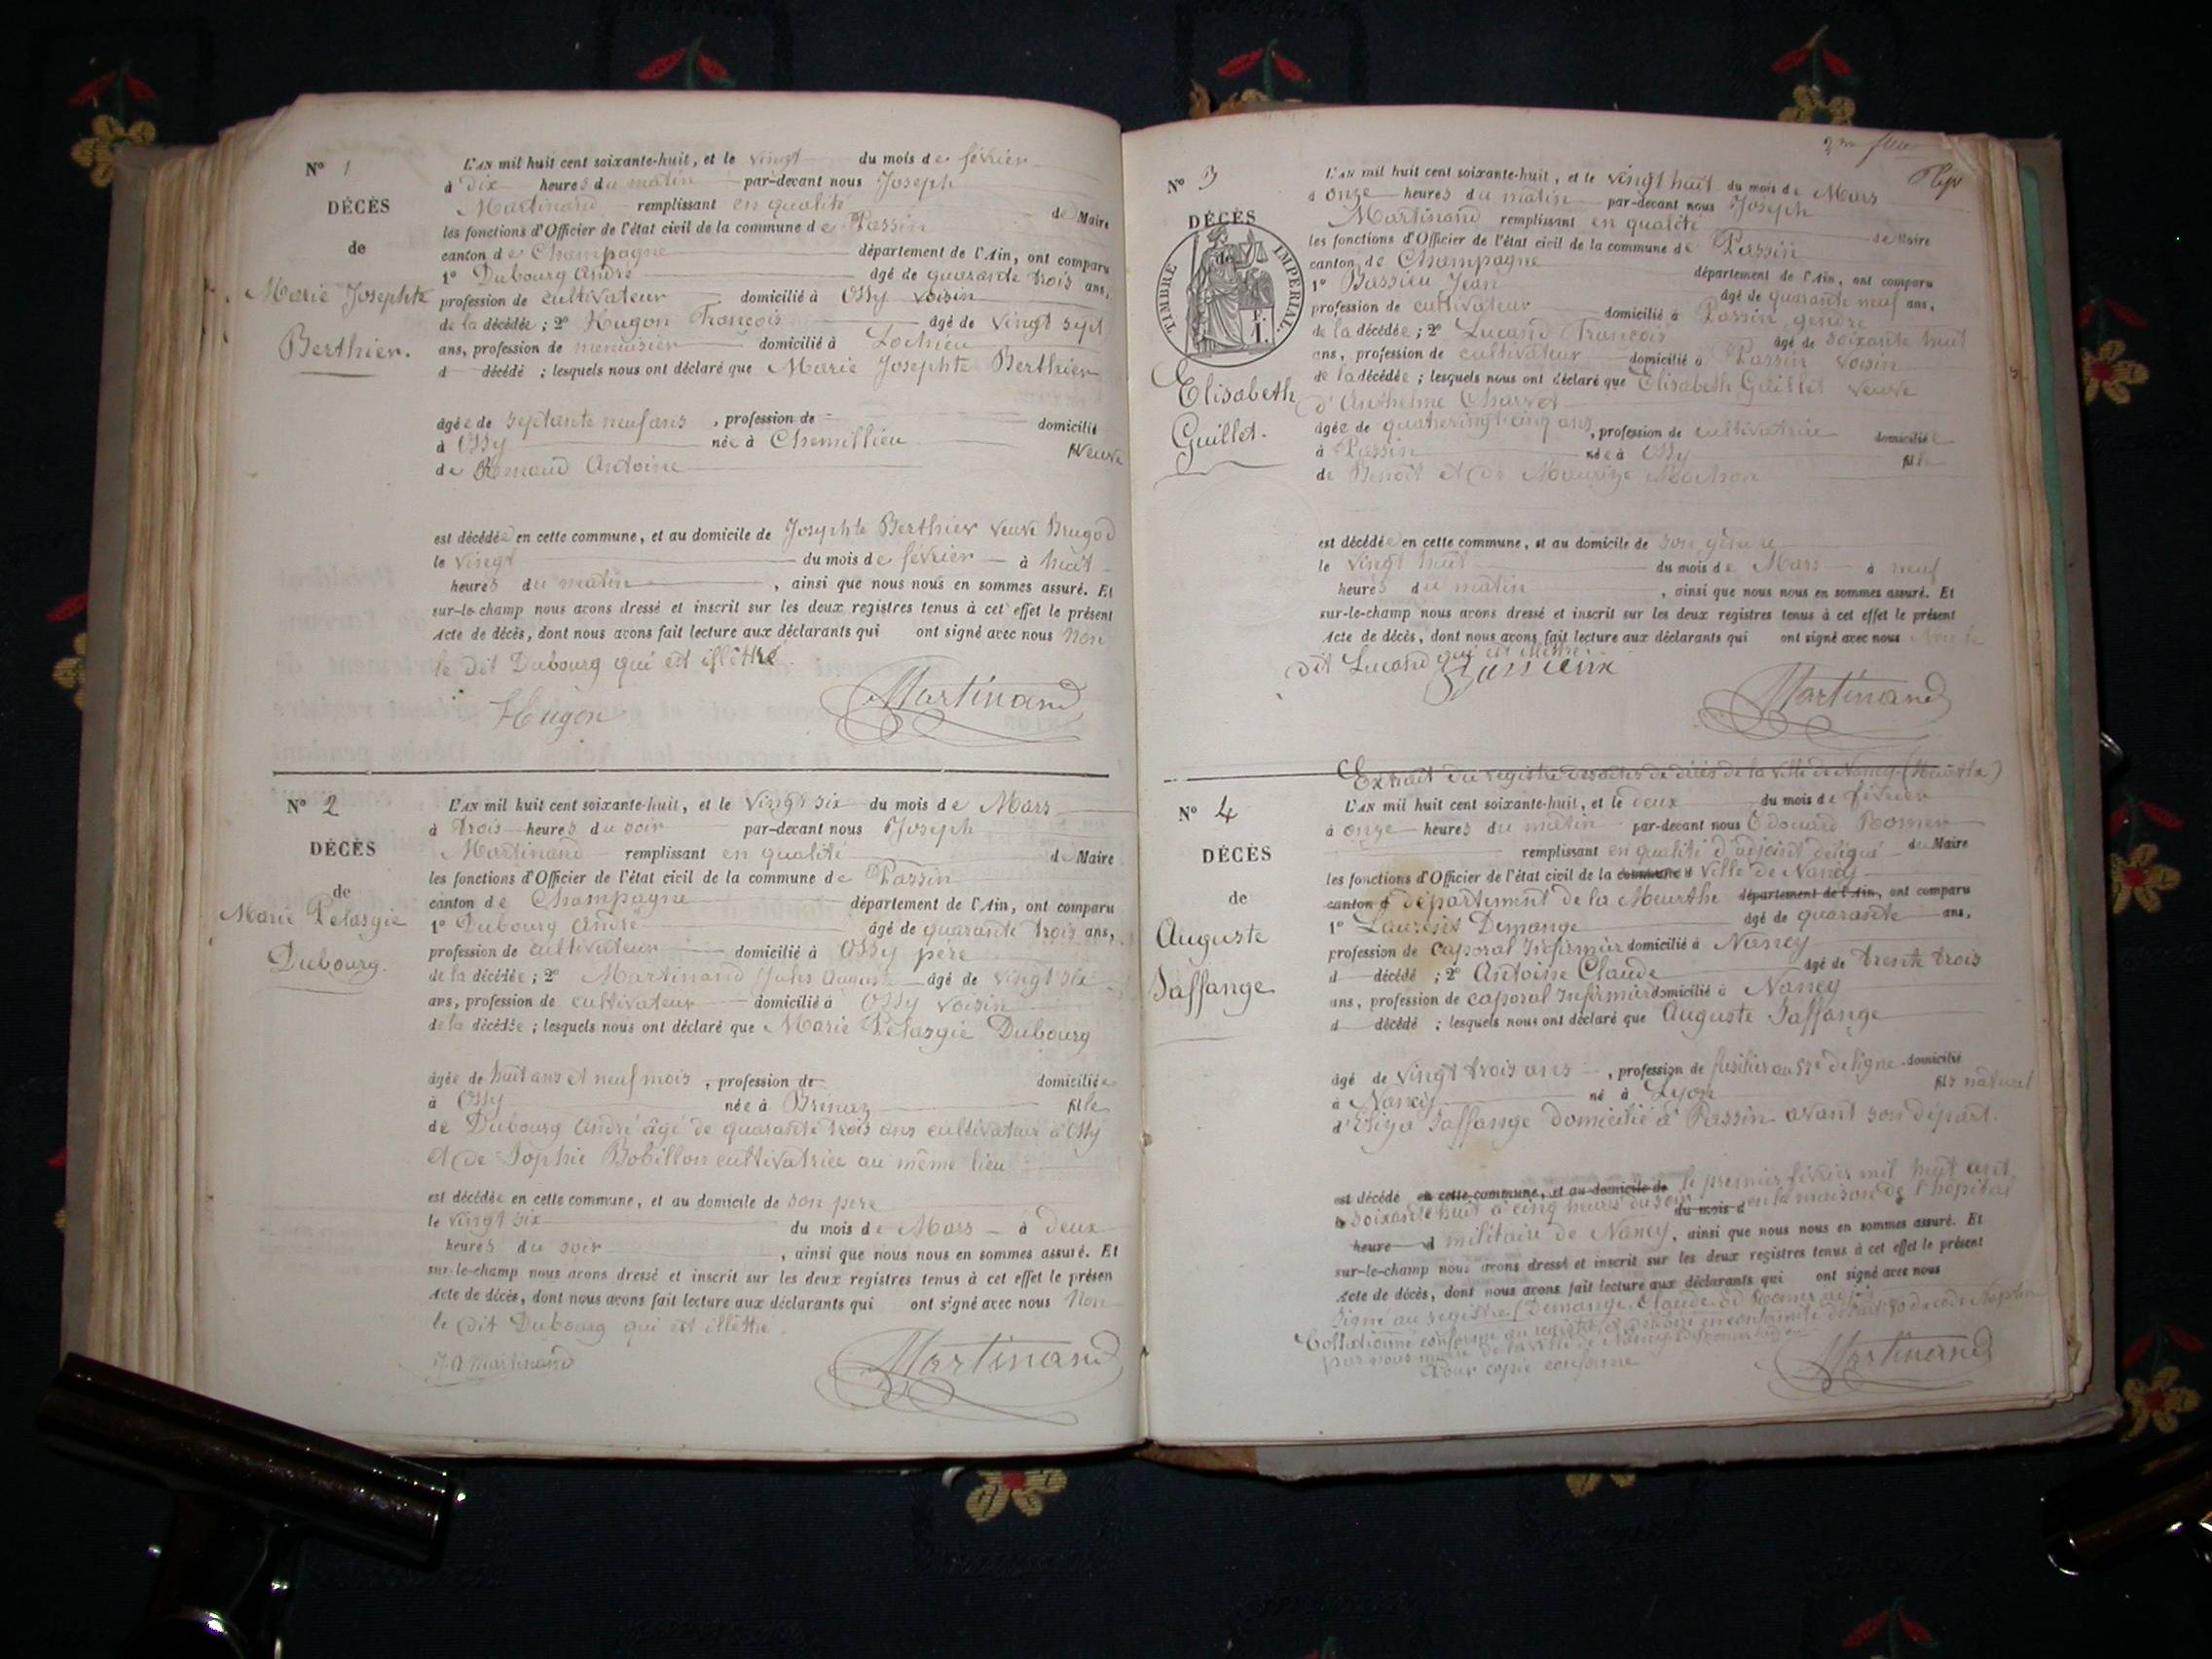 N° 1
DÉCÈS
de
Marie Josephte
Berthier.
L'AN mil huit cent soixante-huit, et le vingt du mois de février
à dix heures du matin par-devant nous Joseph
Martinand remplissant en qualité de Maire
les fonctions d'Officier de l'état civil de la commune de Passin
canton de Champagne département de l'Ain, ont comparu
1° Dubourg André âgé de quarante trois ans,
profession de cultivateur domicilié à Ossy voisin
de la décédée ; 2° Hugon François âgé de vingt sept
ans, profession de menuisier domicilié à Lochieu
d décédé ; lesquels nous ont déclaré que Marie Josephte Berthier
âgée de septante neuf ans , profession de domicilié
à Ossy née à Chemillieu veuve
de Antoine
est décédée en cette commune, et au domicile de Josephte Berthier veuve Brugod
le vingt du mois de février à huit
heures du matin , ainsi que nous nous en sommes assuré. Et
sur-le-champ nous avons dressé et inscrit sur les deux registres tenus à cet effet le présent
Acte de décès, dont nous avons fait lecture aux déclarants qui ont signé avec nous Non
le dit Dubourg qui est illétré.
Hugon Martinand
N° 2
DÉCÈS
de
Marie Pelasgie
Dubourg.
L'AN mil huit cent soixante-huit, et le vingt six du mois de Mars
à trois heures du soir par-devant nous Joseph
Martinand remplissant en qualité de Maire
les fonctions d'Officier de l'état civil de la commune de Passin
canton de Champagne département de l'Ain, ont comparu
1° Dubourg André âgé de quarante trois ans,
profession de cultivateur domicilié à Ossy père
de la décédée ; 2° Martinand Jules August âgé de vingt six
ans, profession de cultivateur domicilié à Ossy voisin
de la décédée ; lesquels nous ont déclaré que Marie Pelasgie Dubourg
âgée de huit ans et neuf mois , profession de domiciliée
à Ossy née à Brénaz fille
de Dubourg André âgé de quarante trois ans cultivateur à Ossy
et de Sophie Bobillon cultivatrice au même lieu
est décédée en cette commune, et au domicile de son père
le vingt six du mois de Mars à deux
heures du soir , ainsi que nous nous en sommes assuré. Et
sur-le-champ nous avons dressé et inscrit sur les deux registres tenus à cet effet le présen
Acte de décès, dont nous avons fait lecture aux déclarants qui ont signé avec nous Non
le dit Dubourg qui est illétré.
J A Martinand Martinand
N° 3
DÉCÈS
de
TIMBRE IMPERIAL.
Elisabeth
Guillet.
L'AN mil huit cent soixante-huit, et le vingt huit du mois de Mars
à onze heures du matin par-devant nous Joseph
Martinand remplissant en qualité de Maire
les fonctions d'Officier de l'état civil de la commune de Passin
canton de Champagne département de l'Ain, ont comparu
1° Bassieu Jean âgé de quarante neuf ans,
profession de cultivateur domicilié à Passin gendre
de la décédée ; 2° Lucand François âgé de soixante huit
ans, profession de cultivateur domicilié à Passin voisin
de la décédée ; lesquels nous ont déclaré que Elisabeth Guillet veuve
d'Anthelme Charvet
âgée de quatrevingt cinq ans, profession de cultivatrice domiciliée
à Passin née à Ossy fille
de Benoit et de
est décédée en cette commune, et au domicile de son gendre
le vingt huit du mois de Mars à neuf
heures du matin , ainsi que nous nous en sommes assuré. Et
sur-le-champ nous avons dressé et inscrit sur les deux registres tenus à cet effet le présent
Acte de décès, dont nous avons fait lecture aux déclarants qui ont signé avec nous Non le
dit Lucand qui est illétré.
Bassieux Martinand
Extrait du registre des actes de décès de la Ville de Nancy (Meurthe)
N° 4
DÉCÈS
de
Auguste
Saffange
L'AN mil huit cent soixante-huit, et le deux du mois de février
à onze heures du matin par-devant nous Edouard
remplissant en qualité d'adjoint délégué du Maire
les fonctions d'Officier de l'état civil de la commune d Ville de Nancy
canton d département de la Meurthe département de l'Ain, ont comparu
1° Laurent Demange âgé de quarante ans,
profession de caporal Infirmier domicilié à Nancy
d décédé ; 2° Antoine Claude âgé de trente trois
ans, profession de caporal Infirmier domicilié à Nancy
d décédé ; lesquels nous ont déclaré que Auguste Saffange
âgé de vingt trois ans , profession de fusilier au de ligne domicilié
à Nancy né à Lyon fils naturel
d'Eliza Saffange domicilié à Passin avant son départ.
est décédé en cette commune, et au domicile de le premier février mil huit cent
le soixante huit à cinq heures du soir du mois d en la maison de l'hôpital
heure d militaire de Nancy, ainsi que nous nous en sommes assuré. Et
sur-le-champ nous avons dressé et inscrit sur les deux registres tenus à cet effet le présent
Acte de décès, dont nous avons fait lecture aux déclarants qui ont signé avec nous
signé au registre Demange, Claude
Collationné conforme au registre
par nous maire de la ville de Nancy
Pour copie conforme
Martinand